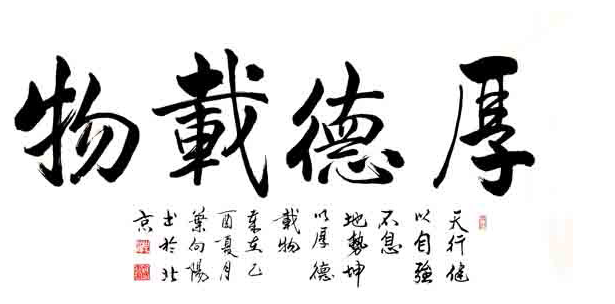 厚德載物
天行健
以自強
不息
地勢坤
以厚德
載物
歲在乙
酉夏月
葉向陽
书於北
京